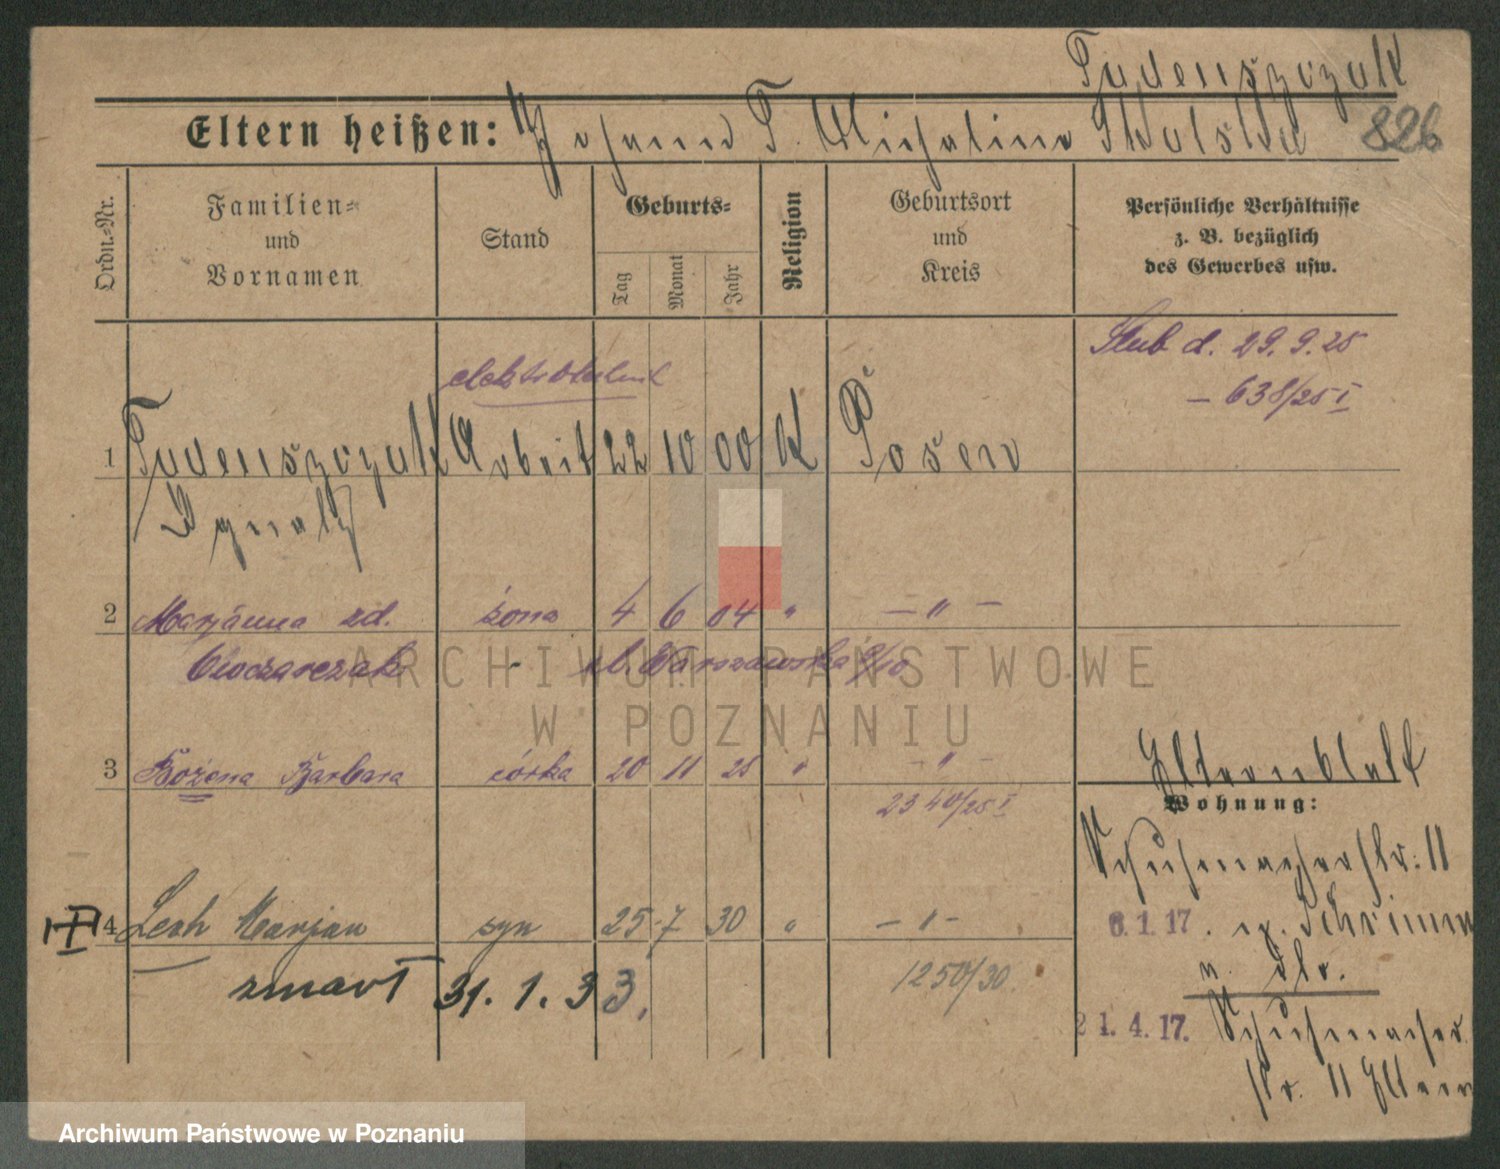 Tudenszczak
Eltern heißen: Johann T. Michalina Skolska
826
Ordn.=Nr.
Familien=
und
Vornamen
Stand
Geburts=
Tag
Monat
Jahr
Religion
Geburtsort
und
Kreis
Persönliche Verhältnisse
z. B. bezüglich
des Gewerbes usw.
Ślub d. 29. 9. 25
– 638/25 I
1 Tudenszczak Arbeit 22 10 00 K Posen
Ignatz
2 Marjanna zd. żona 4 6 04 " – " –
Owczarczak ul. Warszawska 9/10
3 Bożena Barbara córka 20 11 25 " – " –
2340/25 I
4 Lech Marjan syn 25 7 30 " – " –
1250/30.
zmarł 31. 1. 33.
Elternblatt
Wohnung:
Schuhmacherstr. 11
6. 1. 17. Schrimm
21. 4. 17. Schuhmacher
str. 11 Eltern
ARCHIWUM PAŃSTWOWE
W POZNANIU
Archiwum Państwowe w Poznaniu